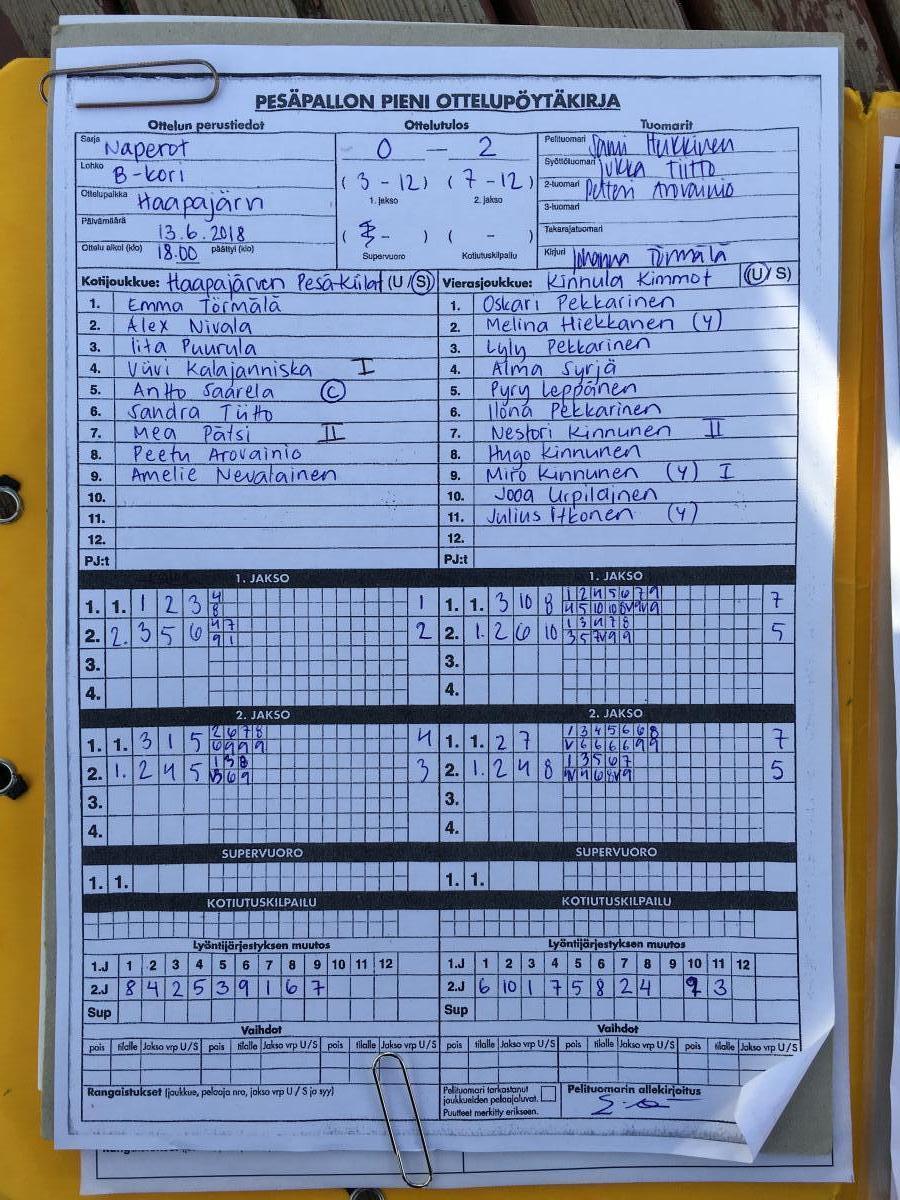 PESÄPALLON PIENI OTTELUPÖYTÄKIRJA
Ottelun perustiedot Ottelutulos Tuomarit
Sarja Naperot
Lohko B-kori
Ottelupaikka Haapajärvi
Päivämäärä 13.6.2018
Ottelu alkoi (klo) 18.00 päättyi (klo)
0 - 2
(3-12) (7-12)
1. jakso 2. jakso
( - ) ( - )
Supervuoro Kotiutuskilpailu
Pelituomari Sami Hukkinen
Syöttötuomari Jukka Tiitto
2-tuomari Petteri Arovainio
3-tuomari
Takarajatuomari
Kirjuri Johanna Törmälä
Kotijoukkue: Haapajärven Pesä-Kiilat (U/S)
1. Emma Törmälä
2. Alex Nivala
3. Iita Puurula
4. Viivi Kalajanniska I
5. Antto Saarela C
6. Sandra Tiitto
7. Mea Pätsi II
8. Peetu Arovainio
9. Amelie Nevalainen
10.
11.
12.
PJ:t
Vierasjoukkue: Kinnula Kimmot (U/S)
1. Oskari Pekkarinen
2. Melina Hiekkanen (Y)
3. Lyly Pekkarinen
4. Alma Syrjä
5. Pyry Leppänen
6. Ilona Pekkarinen
7. Nestori Kinnunen II
8. Hugo Kinnunen
9. Miro Kinnunen (Y) I
10. Joga Urpilainen
11. Julius Itkonen (Y)
12.
PJ:t
1. JAKSO
1. 1. 1 2 3 4 1
8
2. 2. 3 5 6 4 7 2
9 1
3.
4.
1. JAKSO
1. 1. 3 10 8 1 2 4 5 6 7 9 7
2. 1. 2 6 10 1 3 4 7 8 5
3 5 7V 9 9
3.
4.
2. JAKSO
1. 1. 3 1 5 2 6 7 8 4
6 9 9 9
2. 1. 2 4 5 1 3 8 3
V3 6 9
3.
4.
2. JAKSO
1. 1. 2 7 1 3 4 5 6 6 8 7
V 6 6 6 6 9 9
2. 1. 2 4 8 1 3 5 6 7 5
3.
4.
SUPERVUORO
1. 1.
SUPERVUORO
1. 1.
KOTIUTUSKILPAILU
KOTIUTUSKILPAILU
Lyöntijärjestyksen muutos
1.J 1 2 3 4 5 6 7 8 9 10 11 12
2.J 8 4 2 5 3 9 1 6 7
Sup
Lyöntijärjestyksen muutos
1.J 1 2 3 4 5 6 7 8 9 10 11 12
2.J 6 10 1 7 5 8 2 4 9 3
Sup
Vaihdot
pois tilalle Jakso vrp U/S pois tilalle Jakso vrp U/S pois tilalle Jakso vrp U/S
Vaihdot
pois tilalle Jakso vrp U/S pois tilalle Jakso vrp U/S pois tilalle Jakso vrp U/S
Rangaistukset (joukkue, pelaaja nro, jakso vrp U / S ja syy)
Pelituomari tarkastanut
joukkueiden pelaajaluvat.
Puutteet merkitty erikseen.
Pelituomarin allekirjoitus